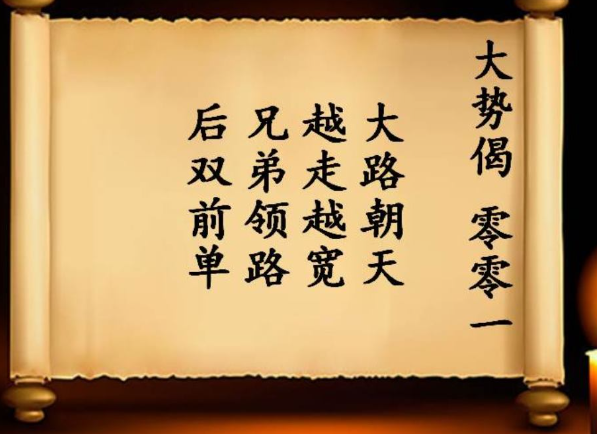 大势偈 零零一
大路朝天
越走越宽
兄弟领路
后双前单